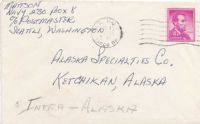 MATSON
NAVY 230 BOX 8
% POSTMASTER
SEATTLE, WASHINGTON
ALASKA SPECIALTIES CO.
KETCHIKAN, ALASKA
INTRA - ALASKA